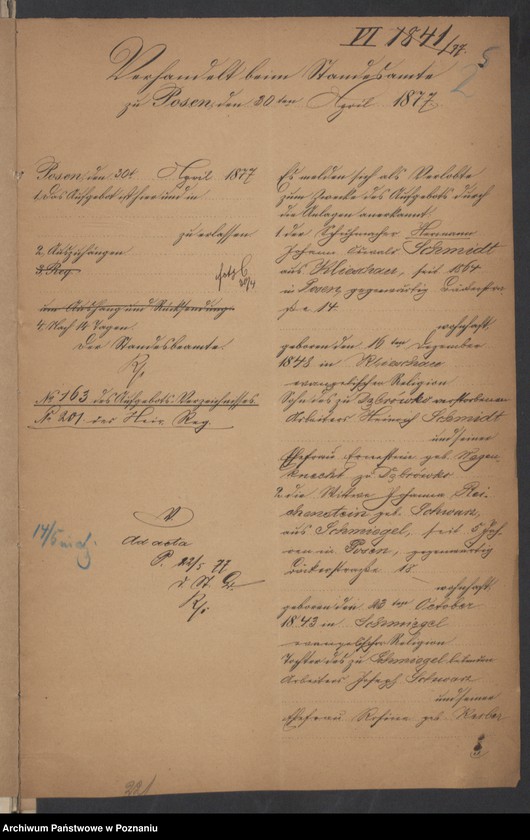 VI 1841/77.
2
Verhandelt beim Standesamte
zu Posen, den 30ten April 1877.
Posen den 30t April 1877
1. Das Aufgebot ist hier und in
zu erlassen
2. Auszuhängen
3. Reg.
um Aushang und Rücksendung.
4. Nach 14 Tagen.
Der Standesbeamte
No 163 des Aufgebots-Verzeichnisses
No 201 des Heir. Reg.
V.
Ad acta
P. 22/5 77
d. St. B.
14/5
Es melden sich als Verlobte
zum Zwecke des Aufgebots durch
die Anlagen anerkannt
1. der Schuhmacher Hermann
Johann Oswald Schmidt
aus, seit 1864
in Posen, gegenwärtig
14
wohnhaft
geboren den 16ten Dezember
1848 in
evangelischer Religion
Sohn des zu Dąbrówko verstorbenen
Arbeiters Heinrich Schmidt
und seiner
Ehefrau Ernestine geb. Wagen-
knecht zu Dąbrówko
2. die Wittwe Johanna Rei-
chenstein geb. Schwarz,
aus Schmiegel, seit 5 Jah-
ren in Posen, gegenwärtig
15
wohnhaft
geboren den 23ten October
1843 in Schmiegel
evangelischer Religion
Tochter des zu Schmiegel
Arbeiters Joseph Schwarz
und seiner
Ehefrau Rosina geb.
221
Archiwum Państwowe w Poznaniu